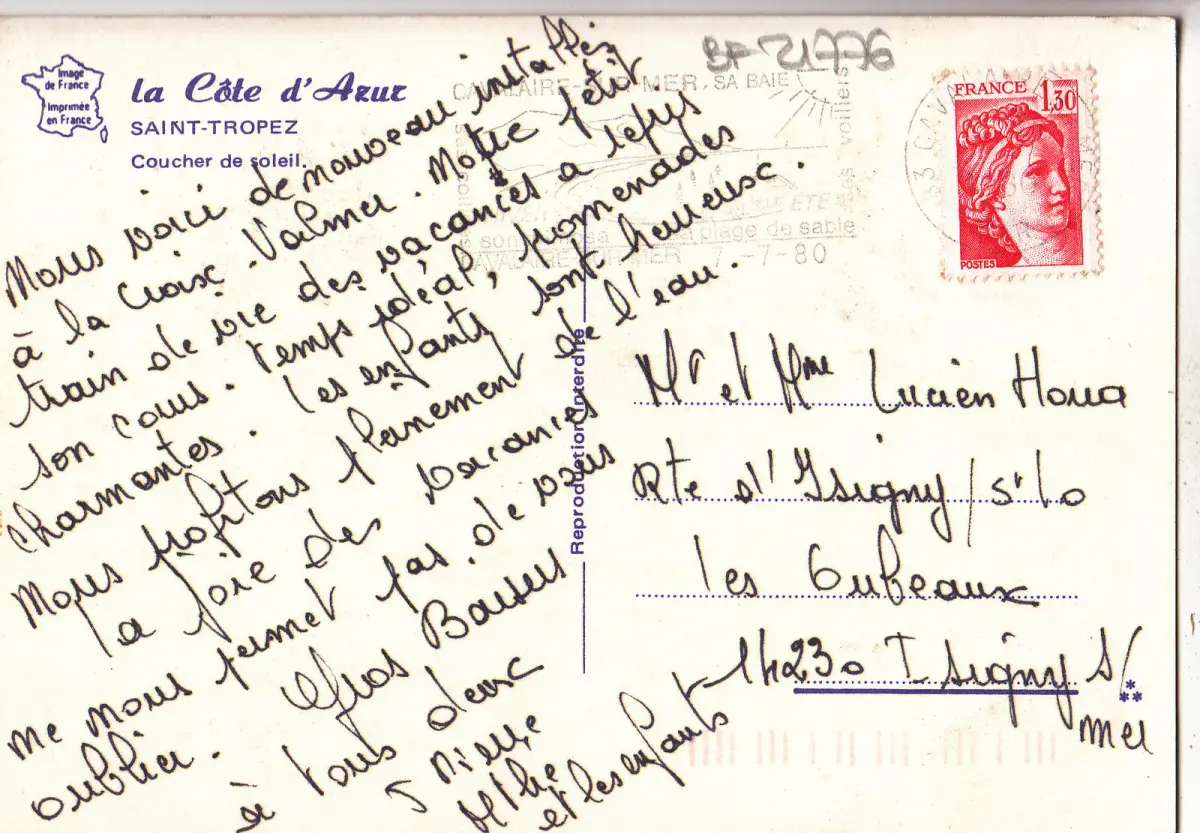 Image
de France
Imprimée
en France
la Côte d'Azur
SAINT-TROPEZ
Coucher de soleil.
BF 21776
CAVALAIRE-SUR-MER, SA BAIE
ses voiliers
ETE
son sa plage de sable
CAVALAIRE SUR MER 7-7-80
FRANCE 1,30
POSTES
Nous voici de nouveau installés
à la Croix-Valmer. Notre petit
train de vie des vacances a repris
son cours. Temps idéal, promenades
charmantes. Les enfants sont heureux.
Nous profitons pleinement de l'eau.
la joie des vacances
ne nous permet pas de vous
oublier. Gros Baisers
à tous deux
Pierre
et les enfants
Reproduction interdite
Mr et Mme Lucien Houa
Rte d'Isigny / St Lo
les Oubeaux
14230 Isigny S/
mer